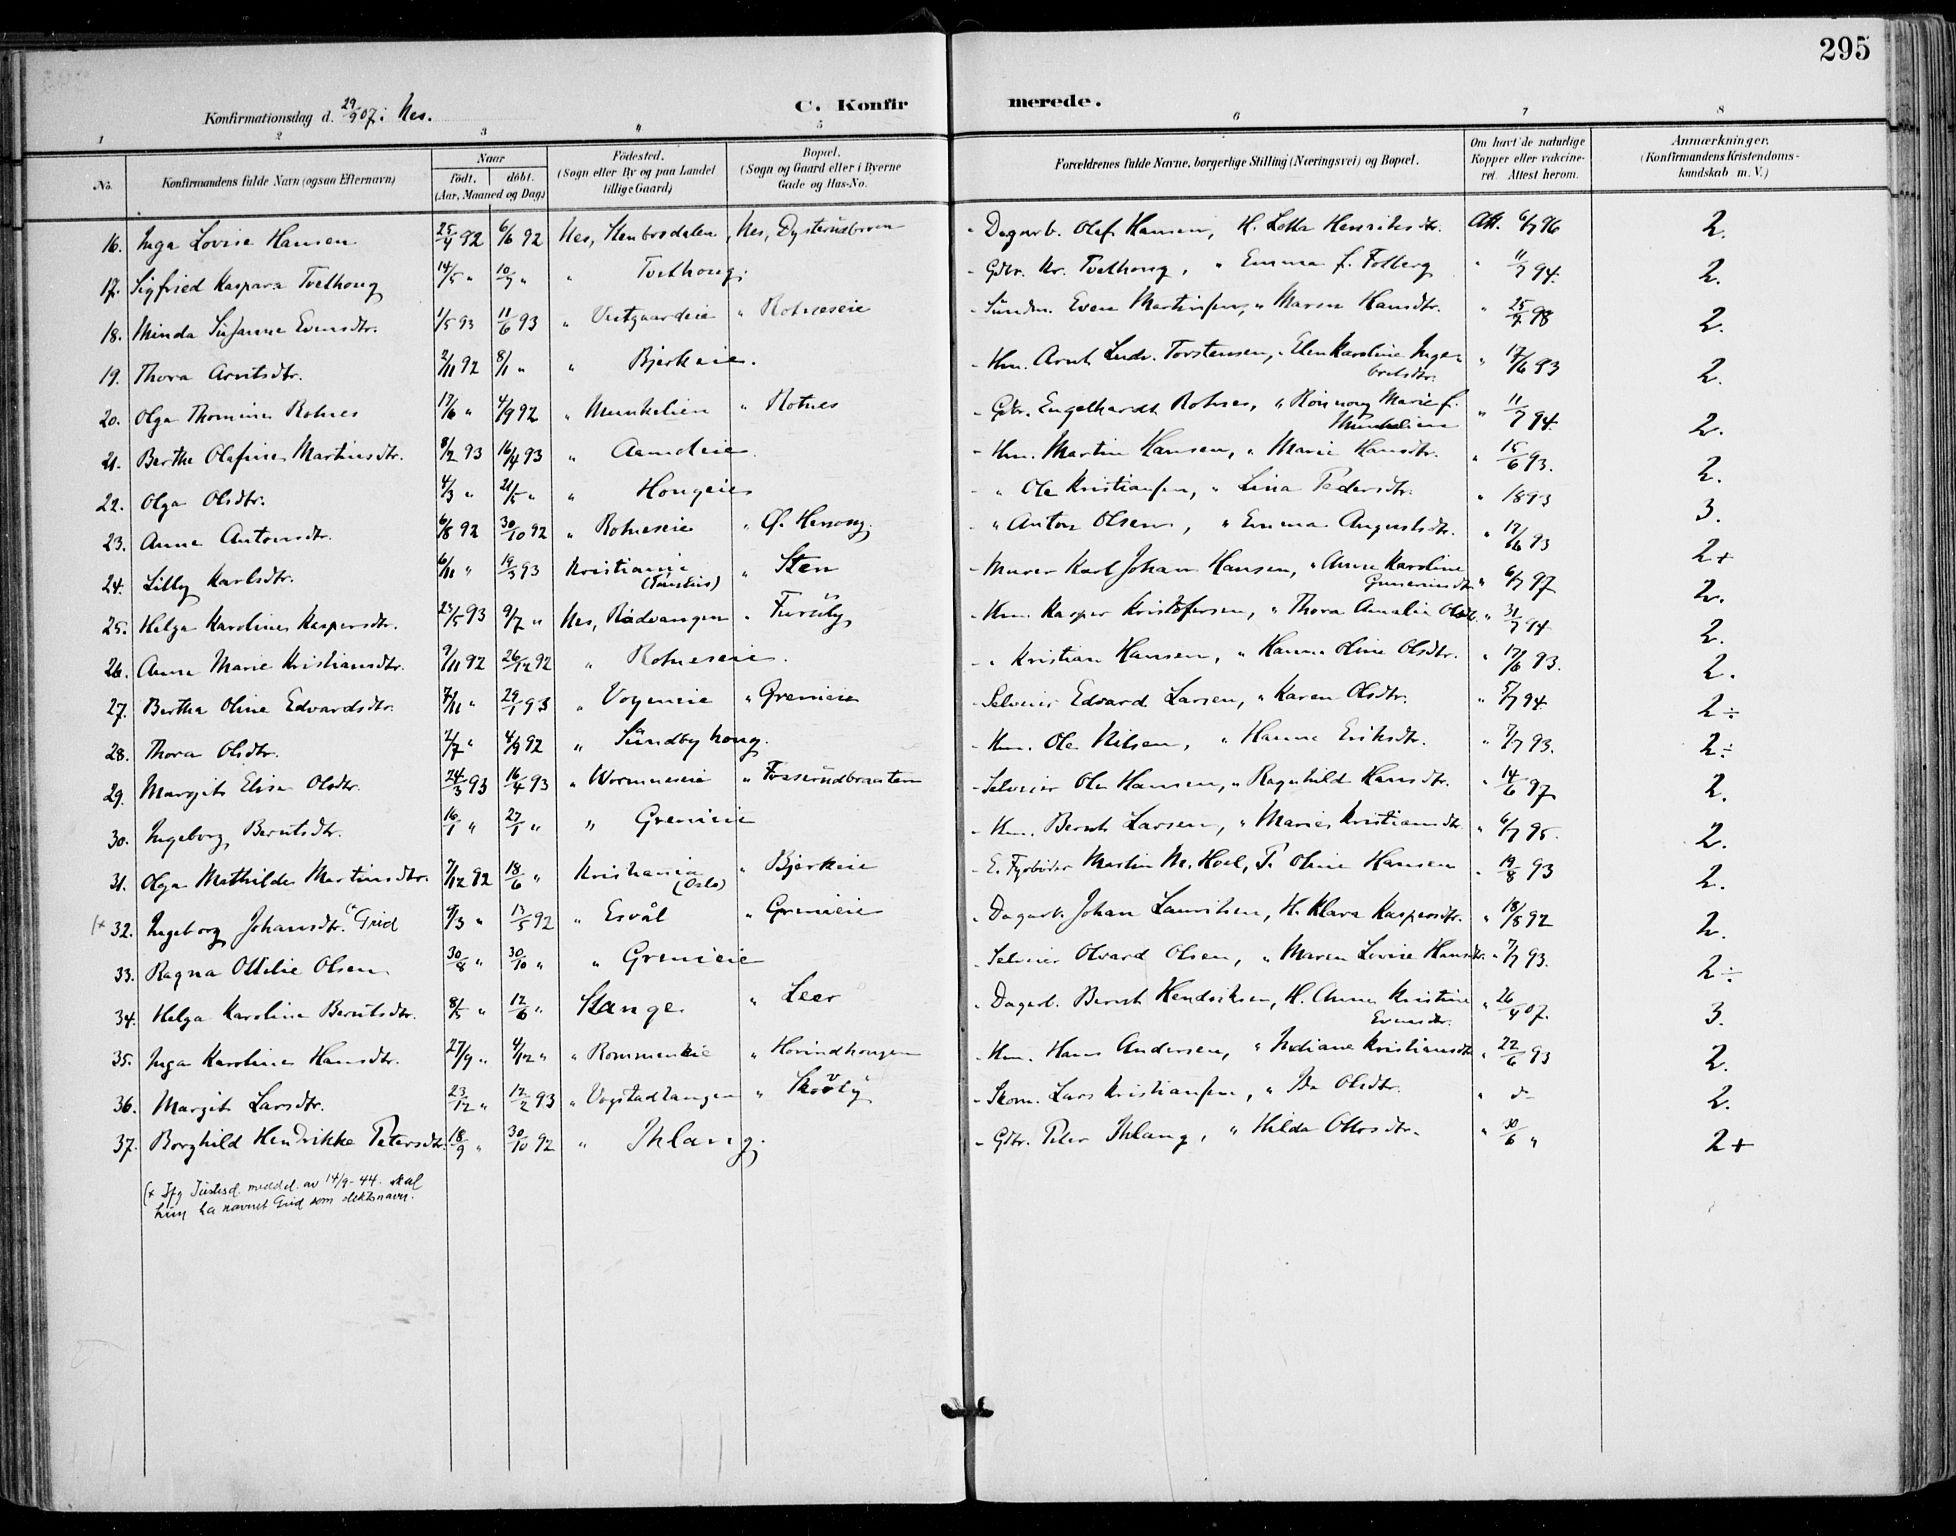 295
C. Konfirmerede.
Konfirmationsdag d. 29/9 07 i Nes.
1 2 3 " 5 6 7 8
No. Konfirmandens fulde Navn (ogsaa Efternavn) Naar Födt. döbt. (Aar, Maaned og Dag) Födested. (Sogn eller By og paa Landet tillige Gaard) Bopæl. (Sogn og Gaard eller i Byerne Gade og Hus-No. Forældrenes fulde Navne, borgerlige Stilling (Næringsvei) og Bopæl. Om havt de naturlige Kopper eller vakcineret. Attest herom. Anmærkninger. (Konfirmandens Kristendomskundskab m. V.)
16. Inga Lovise Hansen 25/4 92 6/6 92 Nes, Stenbrodalen Nes, Dysterudbroen - Dagarb. Olaf Hansen, H. Lotta Henriksdtr. Att. 6/7 96 2.
17. Sigfried Kaspara Tvethoug 14/5 " 10/7 " " Tvethoug. - Gdbr. Kr. Tvethoug, " Emma f. Folberg " 11/7 94. 2.
18. Minda Susanne Evensdtr. 1/5 93 11/6 93 " Vestgaardeie " Rotneseie - Sundm. Even Martinsen, " Maren Hansdtr. " 25/7 98 2.
19. Thora Arntsdtr. 2/11 92 8/1 " " Bjerkeie. - Hm. Arnt Ludv. Torstensen, " Elen Karoline Ingebretsdtr. " 17/6 93 2.
20. Olga Thomine Rotnes 17/6 " 4/9 92 " Munkelien " Rotnes - Gdbr. Engelhardt Rotnes, " Rönnoug Marie f. Munkelien " 11/7 94. 2.
21. Berthe Olefine Martinsdtr. 8/2 93 16/4 93 " Aamdeie. - Hm. Martin Hansen, " Marie Hansdtr. " 15/6 93. 2.
22. Olga Olsdtr. 4/3 " 21/5 " " Hougeie - " Ole Kristiansen, " Lina Pedersdtr. " 1893 3.
23. Anna Antonsdtr. 6/8 92 30/10 92 " Rotneseie " Ø. Hersoug. - " Anton Olsen, " Emma Augustdtr. " 17/6 93 2+
24. Lilly Karlsdtr. 6/11 " 19/3 93 Kristiania " Sten - Murer Karl Johan Hansen, " Anne Karoline Guneriusdtr. " 6/7 97 2.
25. Helga Karoline Kaspersdtr. 23/5 93 9/7 " Nes, Rådvangen " Furuly - Hm. Kasper Kristofersen, " Thora Amalie Olsdtr. " 31/7 94 2.
26. Anne Marie Kristiansdtr. 9/11 92 26/12 92 " Rotneseie. - " Kristian Hansen, " Hanna Oline Olsdtr. " 17/6 93. 2.
27. Bertha Oline Edvardsdtr. 7/11 " 29/1 93 " Voymeie " Grenieie - Selveier Edvard Larsen, " Karen Olsdtr. " 5/7 94. 2÷
28. Thora Olsdtr. 2/7 " 4/9 92 " Sundbyhoug. - Hm. Ole Nilsen, " Hanna Eriksdtr. " 7/7 93. 2÷
29. Margit Elise Olsdtr. 24/3 93 16/4 93 " Wormneseie " Fosserudbraaten - Selveier Ole Hansen, " Ragnhild Hansdtr. " 14/6 97 2.
30. Ingeborg Berntsdtr. 16/1 " 27/1 " " Grenieie - Hm. Bernt Larsen, " Marie Kristiansdtr. " 6/7 95. 2.
31. Olga Mathilde Martinsdtr. 7/12 92 18/6 " Kristiania (Oslo) " Bjerkeie - E. Fyrböter Martin M. Hoel, P. Oline Hansen " 19/8 93 2.
(+ 32. Ingeborg Johansdtr. (+ Grid 9/3 " 13/5 92 " Esvål " Grenieie - Dagarb. Johan Lauritsen, H. Klara Kaspersdtr. " 18/8 92 2.
33. Ragna Ottilie Olsen 30/8 " 30/10 " " Grenieie - Selveier Olvard Olsen, " Maren Lovise Hansdtr. " 7/7 93. 2÷
34. Helga Karoline Berntsdtr. 8/5 " 12/6 " Stange " Leer - Dagarb. Bernt Hendriksen, H. Anne Kristine Evensdtr. " 26/4 07. 3.
35. Inga Karoline Hansdtr. 27/9 " 4/12 " " Rommeneie " Horindhougen - Hm. Hans Andersen, " Indiane Kristiansdtr. " 22/6 93 2.
36. Margit Larsdtr. 23/12 " 12/2 93 " Vogstadtangen " Skovly - Skom. Lars Kristiansen, " Ida Olsdtr. " do 2.
37. Borghild Hendrikke Petersdtr. 18/9 " 30/10 92 " Ihlang. - Gdbr. Peter Ihlang, " Hilda Ottosdtr. " 30/6 " 2+
(+ Ifg Justisd. meddel. av 14/9-44. skal
hun ha navnet Grid som slektsnavn.